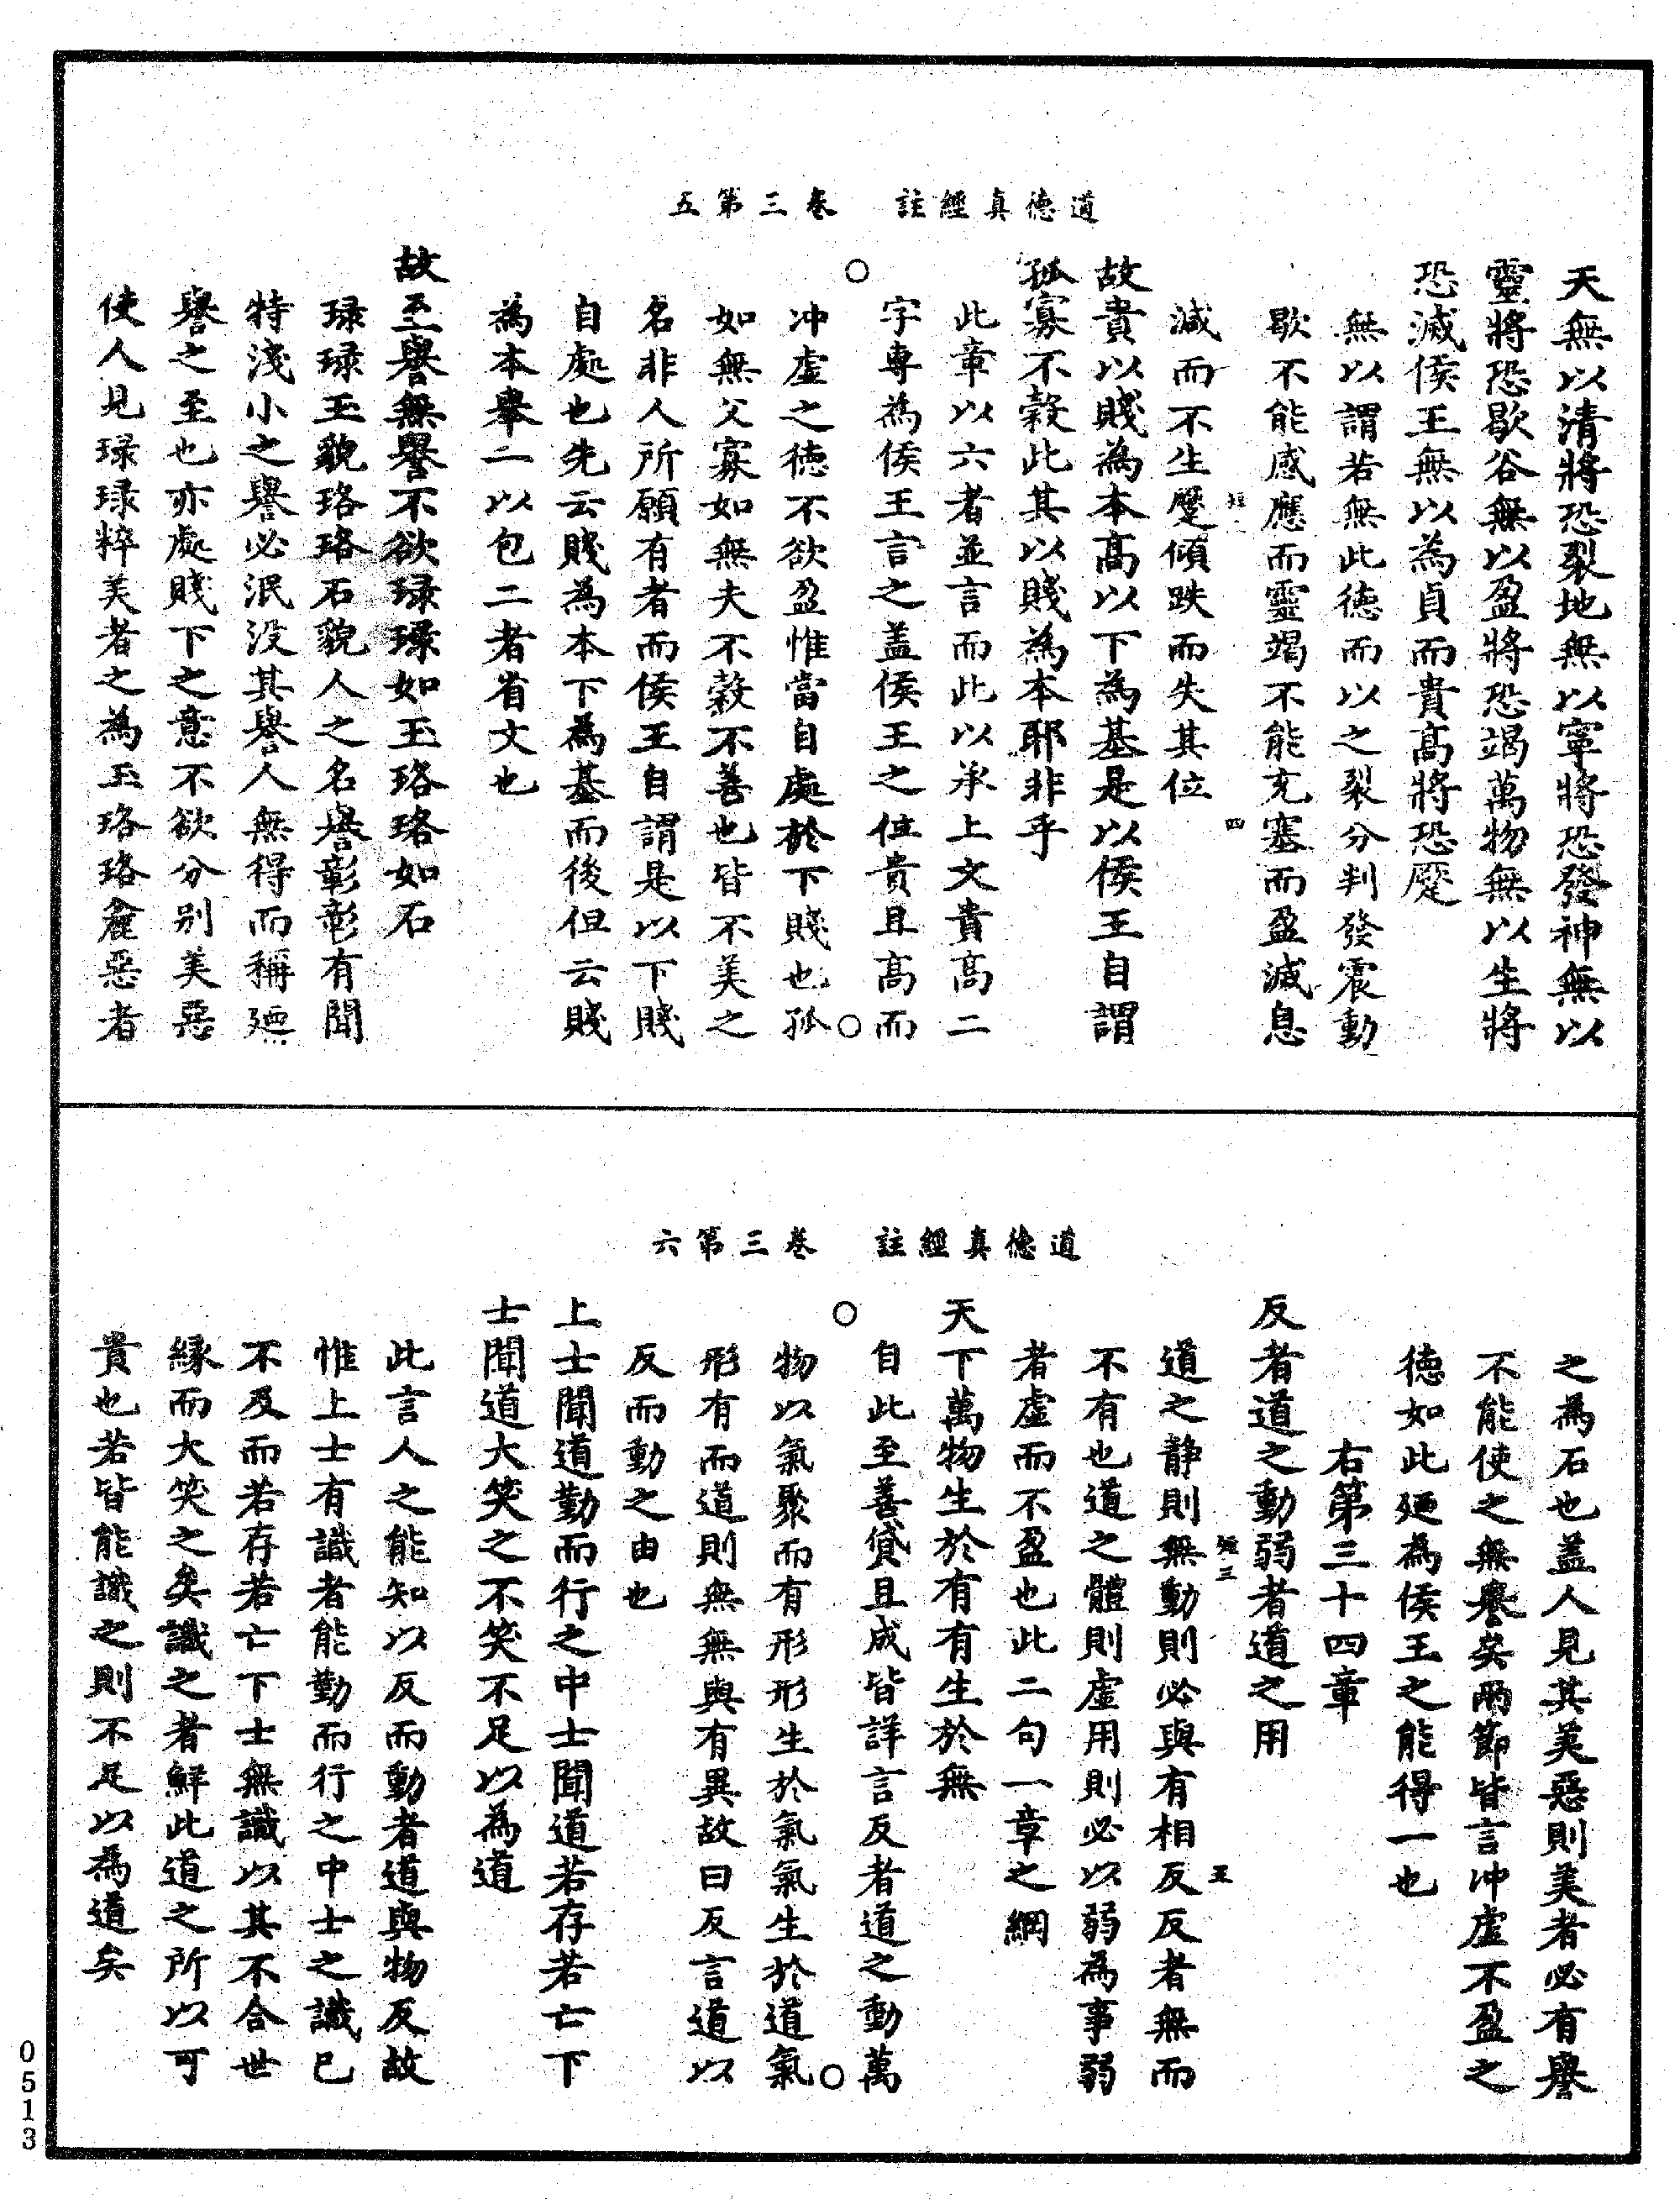 道德真經註　卷三第五
天無以清將恐裂地無以寧將恐發神無以
靈將恐歇谷無以盈將恐竭萬物無以生將
恐滅侯王無以為貞而貴高將恐蹷
無以謂若無此德而以之裂分判發震動
歇不能感應而靈竭不能充塞而盈滅息
滅而不生蹷傾跌而失其位
四
故貴以賤為本高以下為基是以侯王自謂
孤寡不穀此其以賤為本耶非乎
此章以六者並言而此以承上文貴高二
字專為侯王言之蓋侯王之位貴且高而
冲虛之德不欲盈惟當自處於下賤也孤
如無父寡如無夫不穀不善也皆不美之
名非人所願有者而侯王自謂是以下賤
自處也先云賤為本下為基而後但云賤
為本舉一以包二者省文也
故至譽無譽不欲琭琭如玉珞珞如石
琭琭玉貌珞珞石貌人之名譽彰彰有聞
特淺小之譽必泯没其譽人無得而稱廼
譽之至也亦處賤下之意不欲分別美惡
使人見琭琭粹美者之為玉珞珞麄惡者
道德真經註　卷三第六
之為石也蓋人見其美惡則美者必有譽
不能使之無譽矣兩節皆言冲虛不盈之
德如此廼為侯王之能得一也
右第三十四章
反者道之動弱者道之用
道之靜則無動則必與有相反反者無而
三
王
不有也道之體則虛用則必以弱為事弱
者虛而不盈也此二句一章之綱
天下萬物生於有有生於無
自此至善貸且成皆詳言反者道之動萬
物以氣聚而有形形生於氣氣生於道氣
形有而道則無無與有異故曰反言道以
反而動之由也
上士聞道勤而行之中士聞道若存若亡下
士聞道大笑之不笑不足以為道
此言人之能知以反而動者道與物反故
惟上士有識者能勤而行之中士之識已
不及而若存若亡下士無識以其不合世
緣而大笑之矣識之者鮮此道之所以可
貴也若皆能識之則不足以為道矣
0513